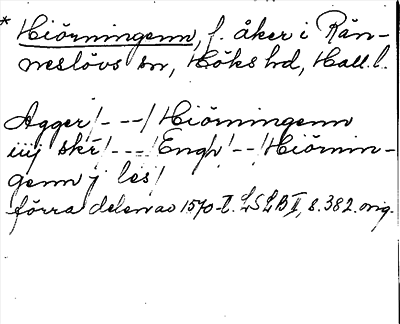 * Hiörningenn, f. åker i Rän-
neslövs sn, Höks hd, Hall. l.
Agger/---/Hiörningenn
iiij skr/---/Engh/--/Hiörnin-
genn j les/
förra delen av 1570-t. LSLB II, s. 382. orig.